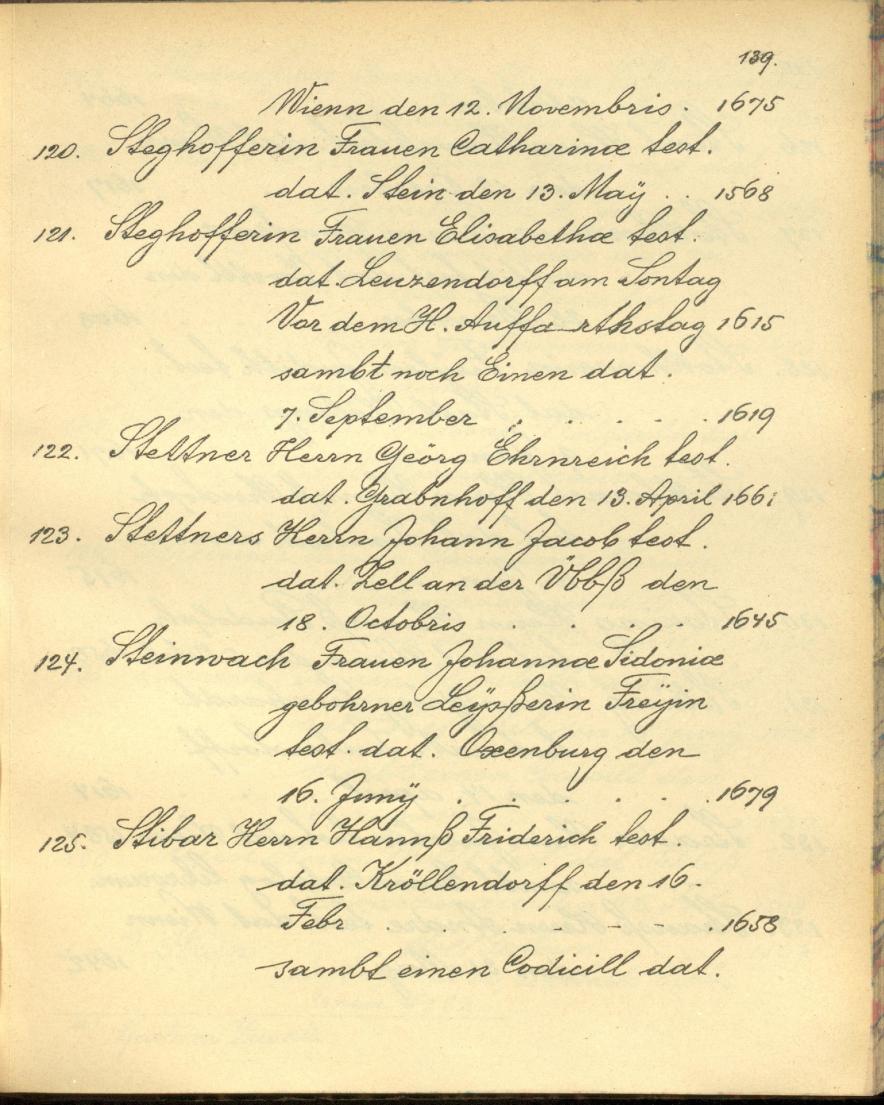 139.
Wienn den 12. Novembris . 1675
120. Steghofferin Frauen Catharinæ test.
dat. Stein den 13. Maÿ . . 1568
121. Steghofferin Frauen Elisabethæ test.
dat. Leuzendorff am Sontag
Vor dem H. Auffarthstag 1615
sambt noch Einen dat.
7. September . . . . . 1619
122. Stettner Herrn Geörg Ehrnreich test.
dat. Grabnhoff den 13. April 1661
123. Stettners Herrn Johann Jacob test.
dat. Zell an der Übbß den
18. Octobris . . . . 1645
124. Steinwach Frauen Johannæ Sidoniæ
gebohrner Leÿsßerin Freÿin
test. dat. Oxenburg den
16. Junÿ . . . . . 1679
125. Stibar Herrn Hannß Friderich test.
dat. Kröllendorff den 16.
Febr . . . - - - 1658
sambt einen Codicill dat.